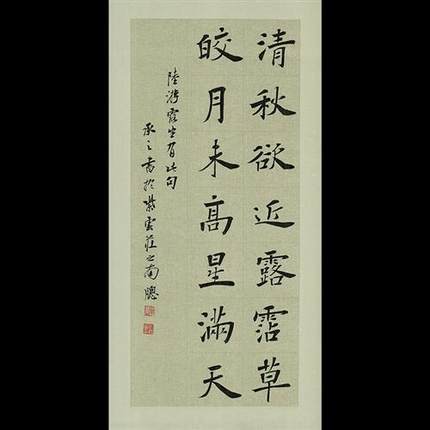 清秋欲近露霑草
皎月未高星滿天
陸游露坐有此句
承之書於紫雲莊之南牕